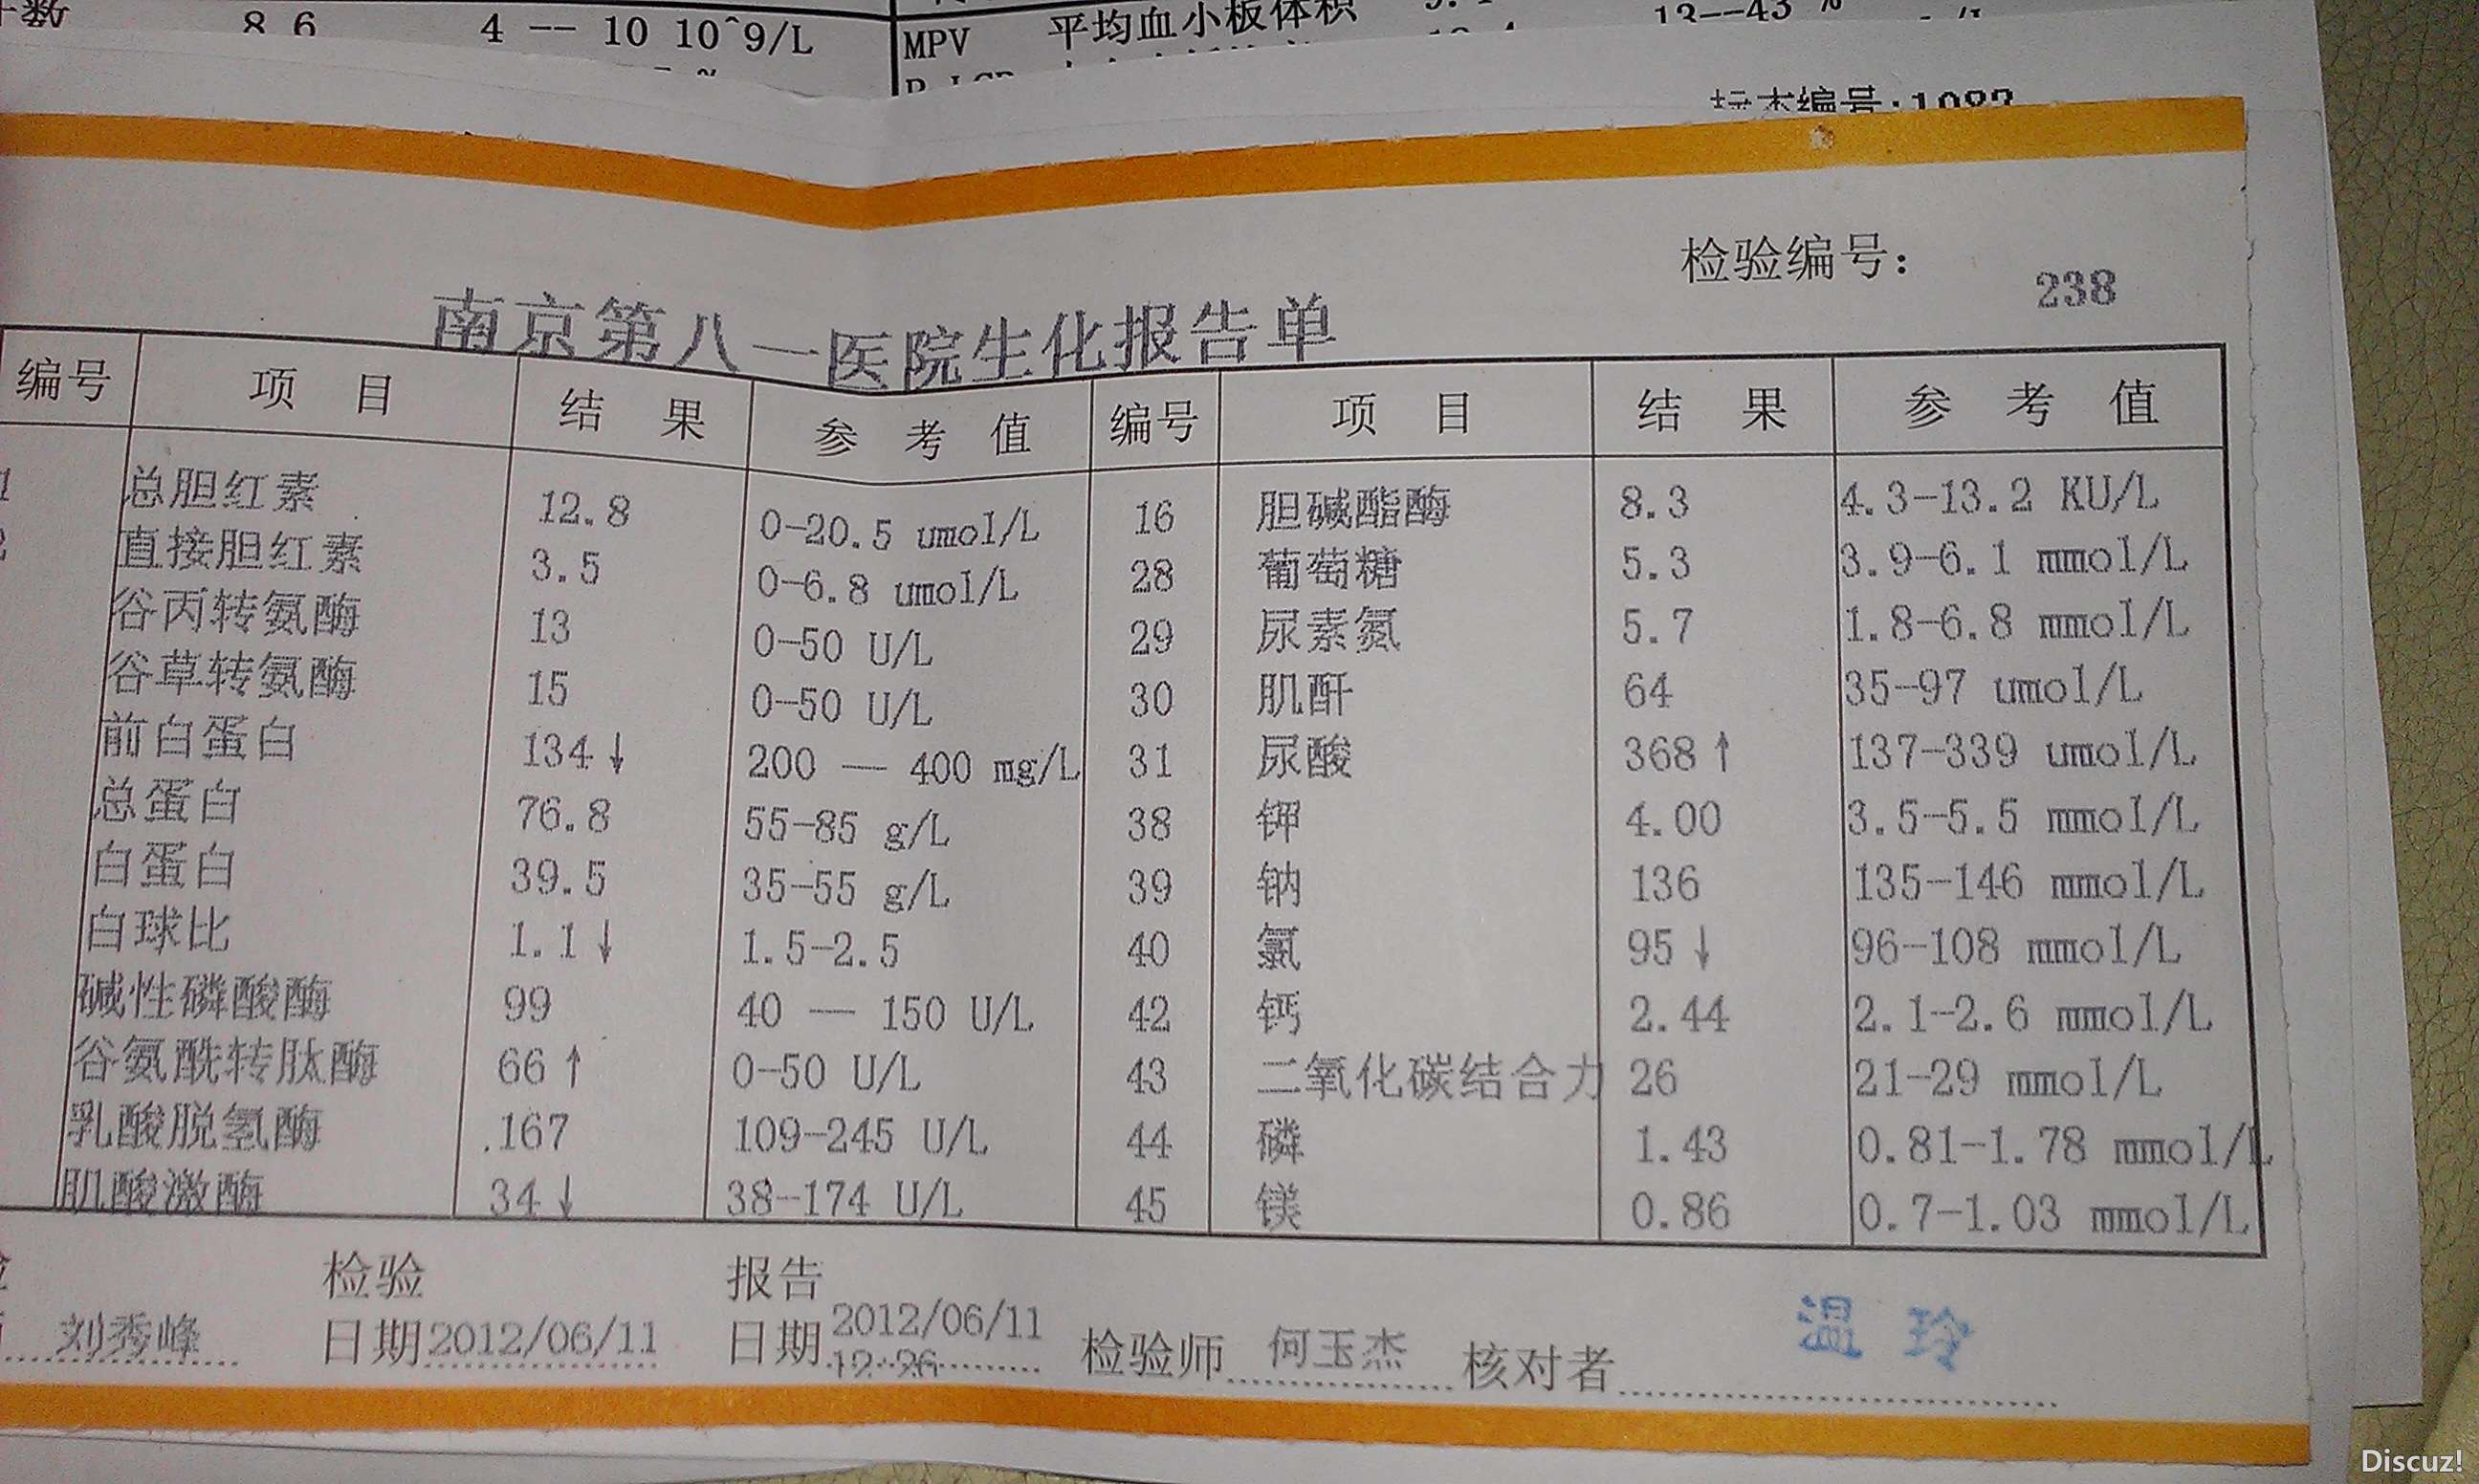 8 6 4 -- 10 10^9/L
MPV 平均血小板体积
13--43 %
标本编号:1083
检验编号： 238
南京第八一医院生化报告单
编号 项 目 结 果 参 考 值 编号 项 目 结 果 参 考 值
1 总胆红素 12.8 0-20.5 umol/L 16 胆碱酯酶 8.3 4.3-13.2 KU/L
2 直接胆红素 3.5 0-6.8 umol/L 28 葡萄糖 5.3 3.9-6.1 mmol/L
谷丙转氨酶 13 0-50 U/L 29 尿素氮 5.7 1.8-6.8 mmol/L
谷草转氨酶 15 0-50 U/L 30 肌酐 64 35-97 umol/L
前白蛋白 134↓ 200 — 400 mg/L 31 尿酸 368↑ 137-339 umol/L
总蛋白 76.8 55-85 g/L 38 钾 4.00 3.5-5.5 mmol/L
白蛋白 39.5 35-55 g/L 39 钠 136 135-146 mmol/L
白球比 1.1↓ 1.5-2.5 40 氯 95↓ 96-108 mmol/L
碱性磷酸酶 99 40 — 150 U/L 42 钙 2.44 2.1-2.6 mmol/L
谷氨酰转肽酶 66↑ 0-50 U/L 43 二氧化碳结合力 26 21-29 mmol/L
乳酸脱氢酶 .167 109-245 U/L 44 磷 1.43 0.81-1.78 mmol/L
肌酸激酶 34↓ 38-174 U/L 45 镁 0.86 0.7-1.03 mmol/L
检验 报告
刘秀峰 日期 2012/06/11 日期 2012/06/11 12:26 检验师 何玉杰 核对者 温玲
Discuz!